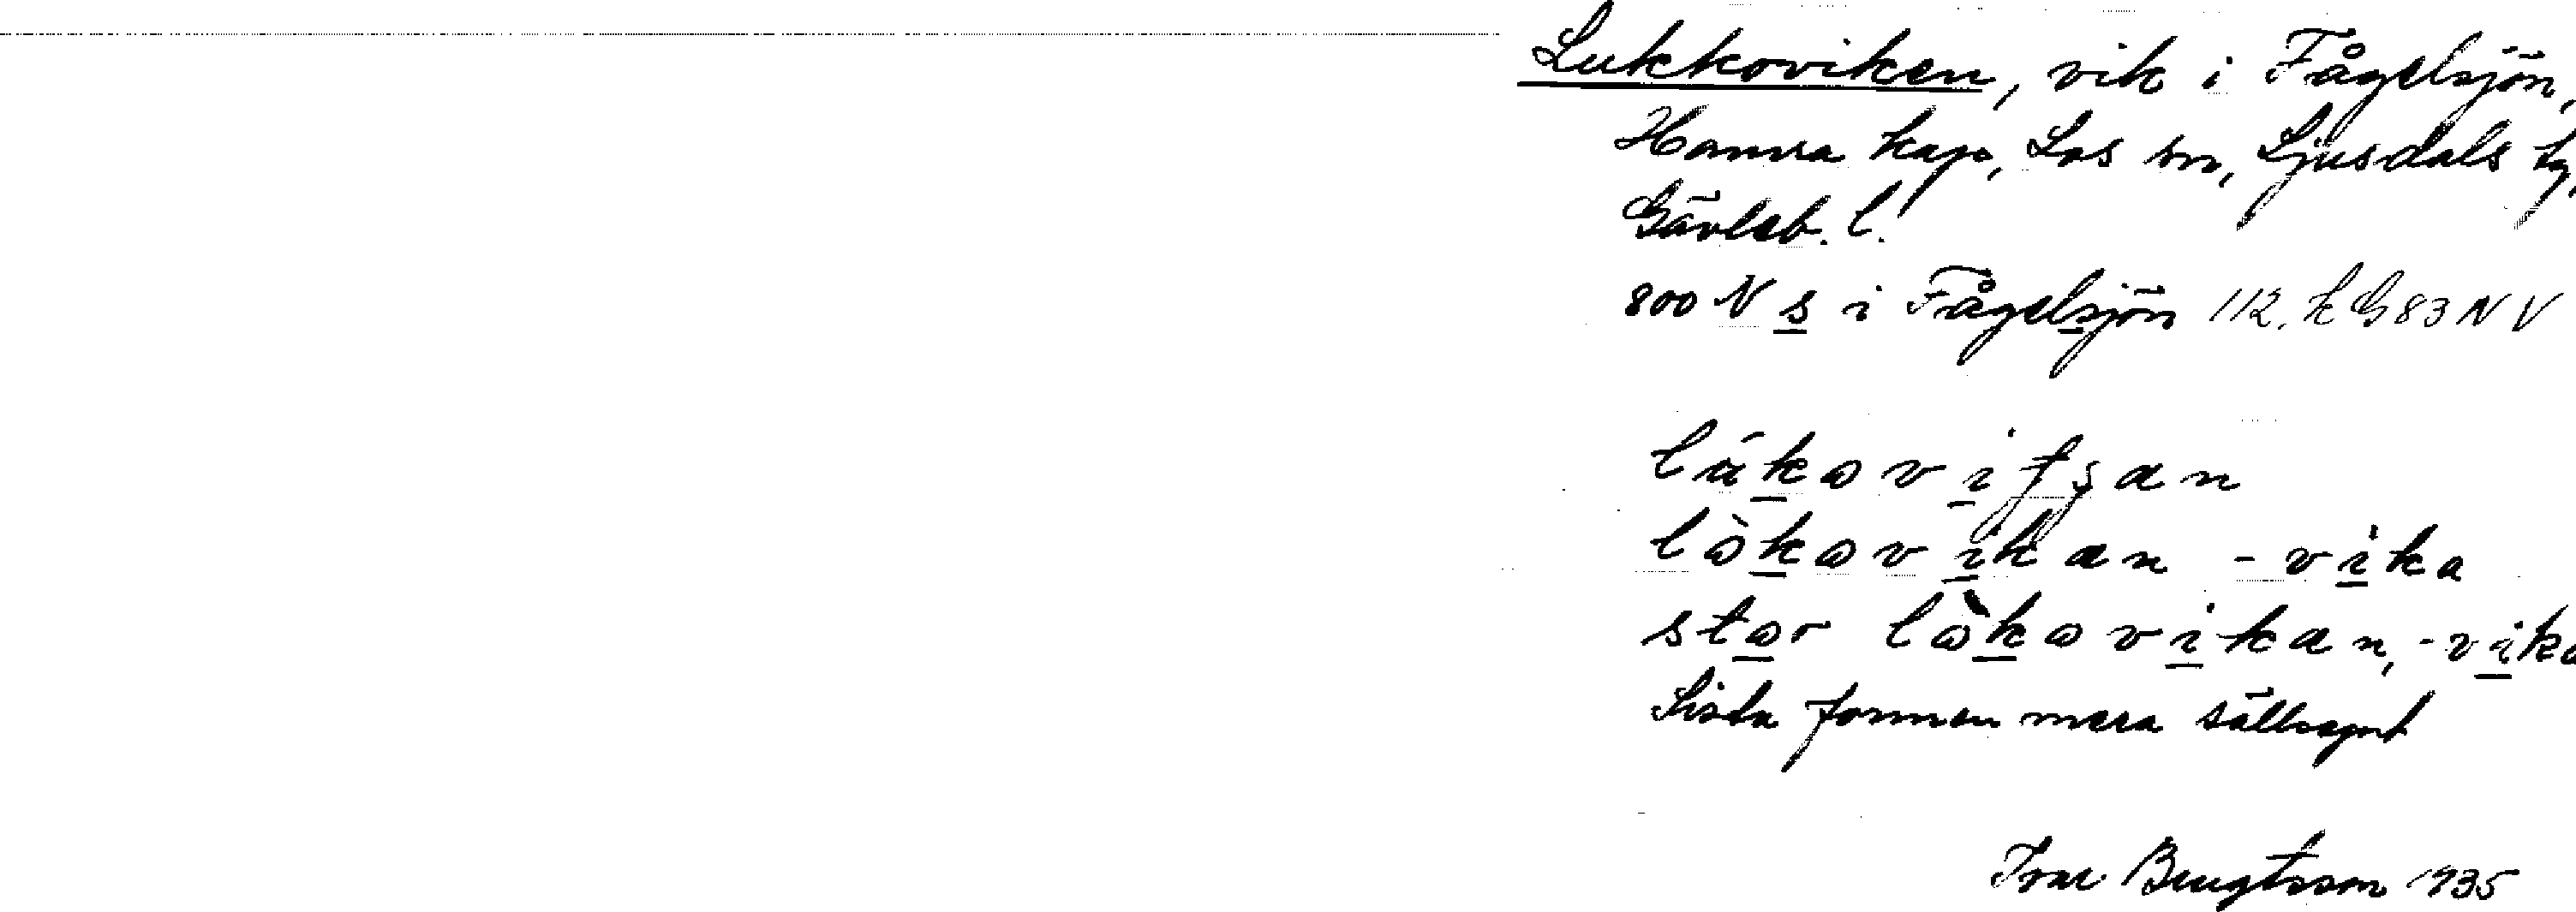 Lukkoviken, vik i Fågelsjön,
Hamra kap, Los sn, Ljusdals tg,
Gävleb. l.
800 N s i Fågelsjön 112. k G 83 N V
lòkovikan - vika
stor lòkovikan, - vika
Sista formen mera sällsynt
Ivar Bengtsson 1935